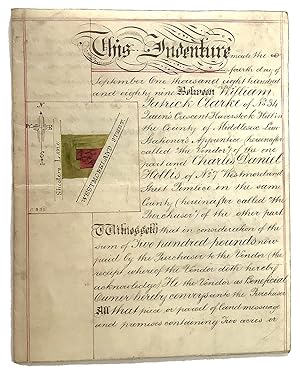 This Indenture made the
fourth day of
September One thousand eight hundred
and eighty nine Between William
Patrick Clarke of No 34
Queens Crescent Haverstock Hill in
the County of Middlesex Law
Stationer's Apprentice (hereinafter
called the Vendor) of the one
part and Charles Daniel
Hollis of No 7 Westmoreland
Street Pimlico in the same
County (hereinafter called the
Purchaser) of the other part
Witnesseth that in consideration of the
sum of Two hundred pounds now
paid by the Purchaser to the Vendor (the
receipt whereof the Vendor doth hereby
acknowledge) He the Vendor as Beneficial
Owner hereby conveys unto the Purchaser
All that piece or parcel of land messuage
and premises containing Two acres or
N
S
Lane
WESTMORELAND STREET